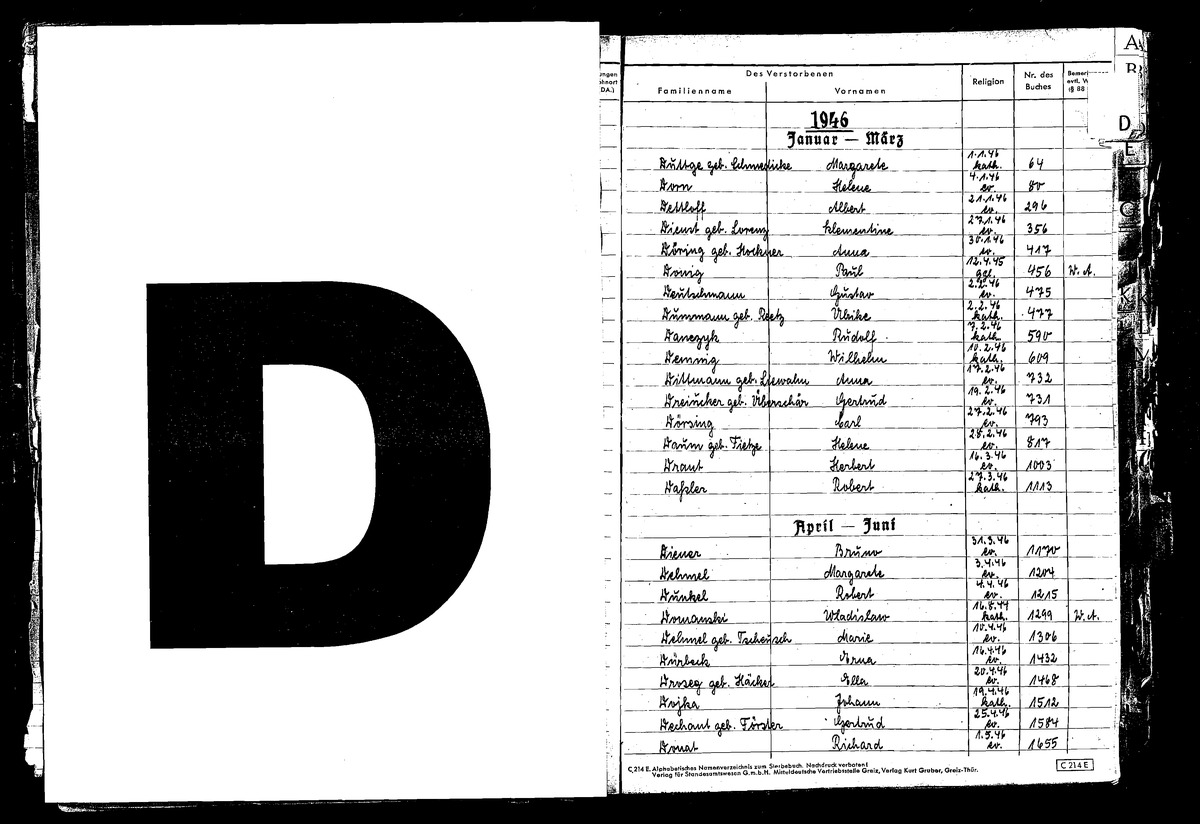 D
Des Verstorbenen
Familienname Vornamen Religion Nr. des Buches
1946
Januar — März
1.1.46
Duttge geb. Schmedicke Margarete kath. 64
4.1.46
Dorn Helene ev. 80
21.1.46
Dettloff Albert ev. 296
27.1.46
Dienst geb. Lorenz Klementine ev. 356
30.1.46
Döring geb. Anna ev. 417
12.4.45
Donig Paul 456 W. A.
2.2.46
Deutschmann Gustav ev. 475
2.2.46
Dummann geb. Reetz Ulrike kath. 477
7.2.46
Danczyk Rudolf kath. 590
10.2.46
Dennig Wilhelm kath. 609
17.2.46
Dittmann geb. Anna ev. 732
19.2.46
Dreiucker geb. Überschär Gertrud ev. 731
27.2.46
Dörsing Carl ev. 793
28.2.46
Daum geb. Tietze Helene ev. 817
16.3.46
Draut Herbert ev. 1003
27.3.46
Daßler Robert kath. 1113
April — Juni
31.3.46
Diener Bruno ev. 1170
3.4.46
Dehmel Margarete ev. 1204
4.4.46
Dunkel Robert ev. 1215
16.8.44
Domanski Wladislaw kath. 1299 W. A.
10.4.46
Dehmel geb. Tscheusch Marie ev. 1306
16.4.46
Dürbeck Erna ev. 1432
20.4.46
Droseg geb. Häcker Ella ev. 1468
19.4.46
Dojka Johann kath. 1512
25.4.46
Dechant geb. Förster Gertrud ev. 1584
1.5.46
Donat Richard ev. 1655
C 214 E. Alphabetisches Namenverzeichnis zum Sterbebuch. Nachdruck verboten!
Verlag für Standesamtswesen G.m.b.H. Mitteldeutsche Vertriebsstelle Greiz, Verlag Kurt Gruber, Greiz-Thür.
C 214 E
A
B
D
E
G
K